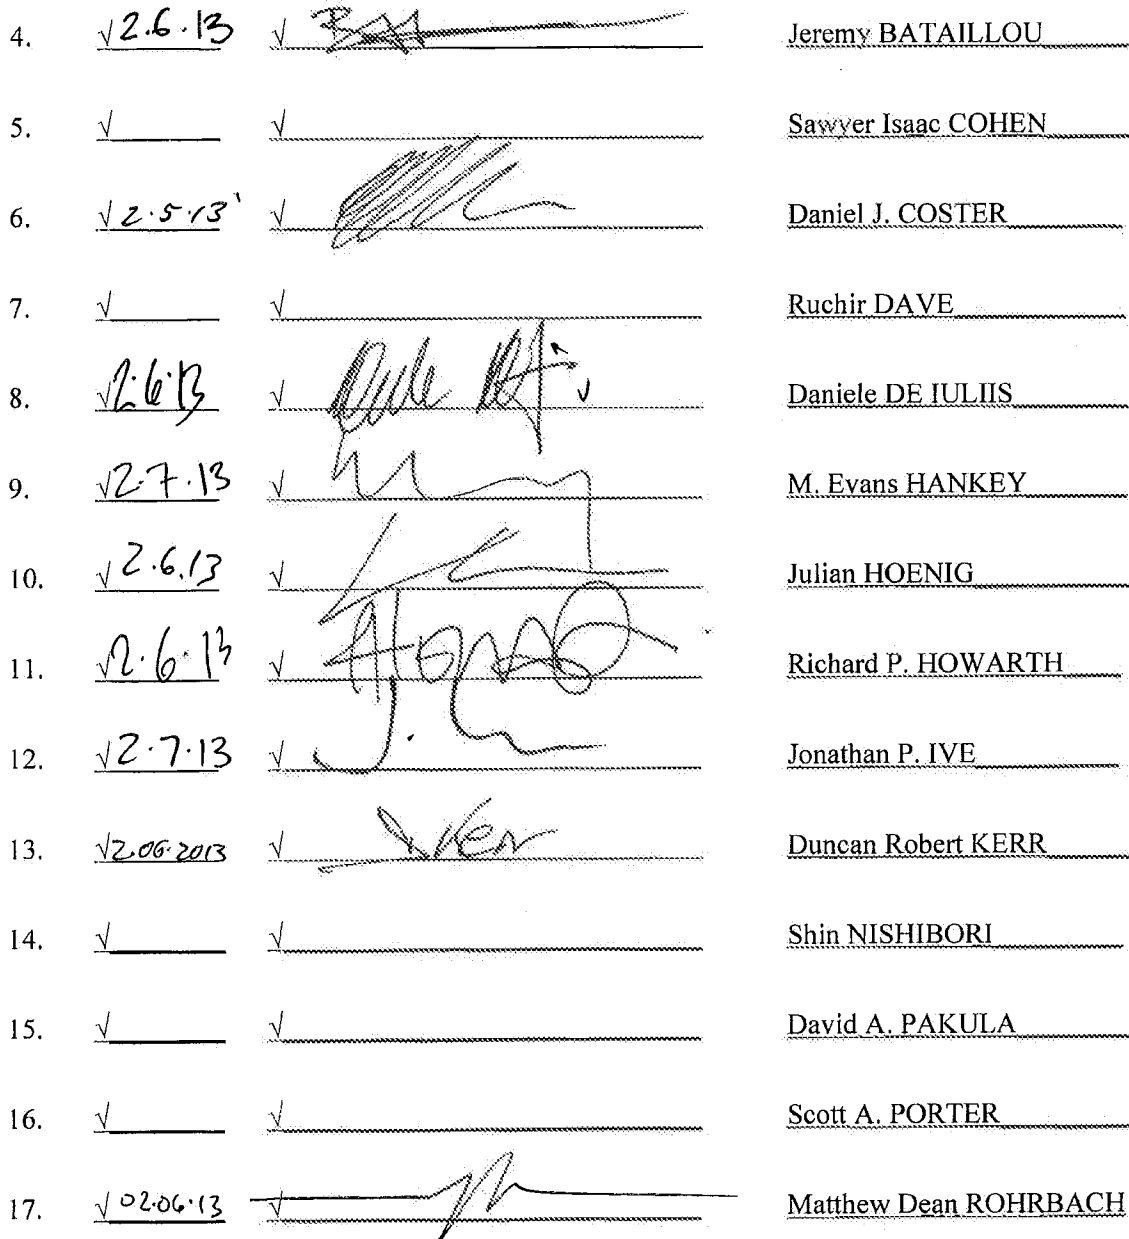 4. √ 2.6.13 √ Jeremy BATAILLOU
5. √ √ Sawyer Isaac COHEN
6. √ 2.5.13 √ Daniel J. COSTER
7. √ √ Ruchir DAVE
8. √ 2.6.13 √ Daniele DE IULIIS
9. √ 2.7.13 √ M. Evans HANKEY
10. √ 2.6.13 √ Julian HOENIG
11. √ 2.6.13 √ Richard P. HOWARTH
12. √ 2.7.13 √ Jonathan P. IVE
13. √ 2.06.2013 √ Duncan Robert KERR
14. √ √ Shin NISHIBORI
15. √ √ David A. PAKULA
16. √ √ Scott A. PORTER
17. √ 02.06.13 √ Matthew Dean ROHRBACH